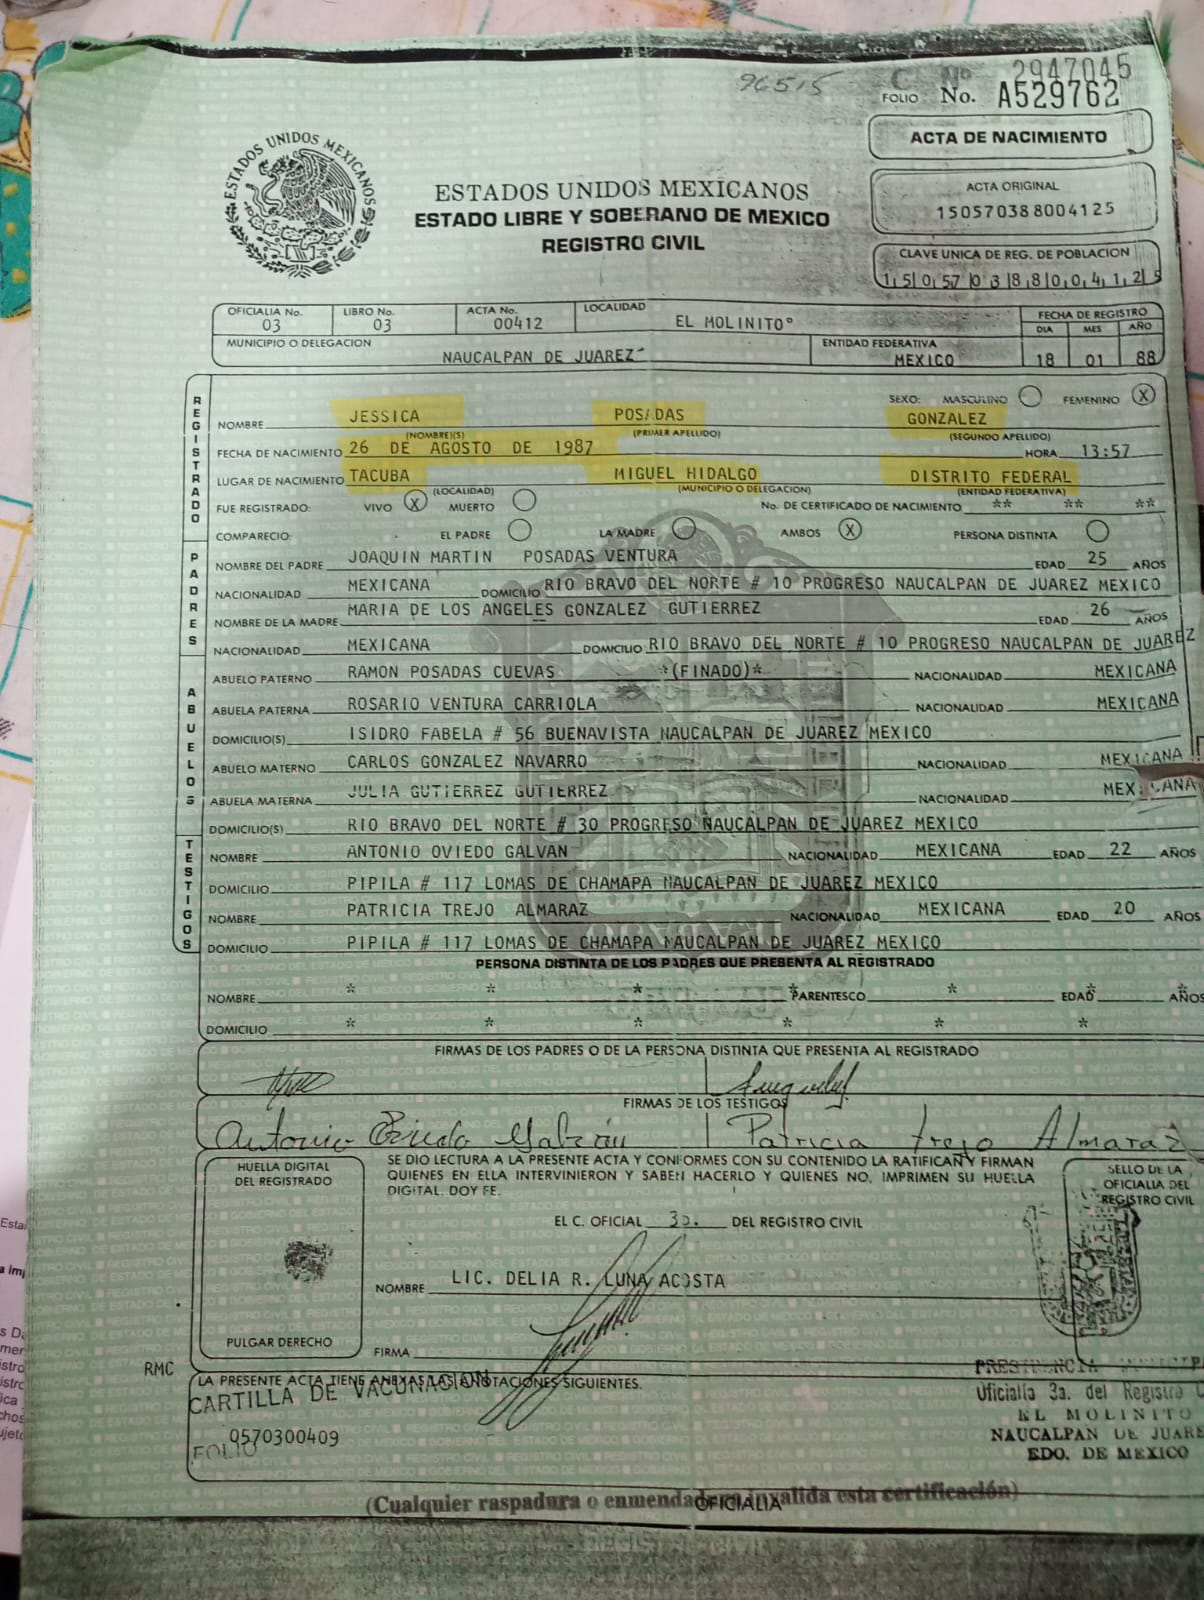 96515
C No 2947045
FOLIO No. A529762
ACTA DE NACIMIENTO
ESTADOS UNIDOS MEXICANOS
ACTA ORIGINAL
15057038800412S
ESTADOS UNIDOS MEXICANOS
ESTADO LIBRE Y SOBERANO DE MEXICO
REGISTRO CIVIL
CLAVE UNICA DE REG. DE POBLACION
15057038800412S
OFICIALIA No. LIBRO No. ACTA No. LOCALIDAD FECHA DE REGISTRO
03 03 00412 EL MOLINITO° DIA MES AÑO
MUNICIPIO O DELEGACION ENTIDAD FEDERATIVA
NAUCALPAN DE JUAREZ MEXICO 18 01 88
REGISTRADO
SEXO: MASCULINO FEMENINO X
NOMBRE JESSICA POSADAS GONZALEZ
(NOMBRE(S) (PRIMER APELLIDO) (SEGUNDO APELLIDO)
FECHA DE NACIMIENTO 26 DE AGOSTO DE 1987 HORA 13:57
LUGAR DE NACIMIENTO TACUBA MIGUEL HIDALGO DISTRITO FEDERAL
(LOCALIDAD) (MUNICIPIO O DELEGACION) (ENTIDAD FEDERATIVA)
FUE REGISTRADO: VIVO X MUERTO No. DE CERTIFICADO DE NACIMIENTO ** **
COMPARECIO: EL PADRE LA MADRE AMBOS X PERSONA DISTINTA
PADRES
NOMBRE DEL PADRE JOAQUIN MARTIN POSADAS VENTURA EDAD 25 AÑOS
NACIONALIDAD MEXICANA DOMICILIO RIO BRAVO DEL NORTE # 10 PROGRESO NAUCALPAN DE JUAREZ MEXICO
NOMBRE DE LA MADRE MARIA DE LOS ANGELES GONZALEZ GUTIERREZ EDAD 26 AÑOS
NACIONALIDAD MEXICANA DOMICILIO RIO BRAVO DEL NORTE # 10 PROGRESO NAUCALPAN DE JUAREZ
ABUELOS
ABUELO PATERNO RAMON POSADAS CUEVAS *(FINADO)* NACIONALIDAD MEXICANA
ABUELA PATERNA ROSARIO VENTURA CARRIOLA NACIONALIDAD MEXICANA
DOMICILIO(S) ISIDRO FABELA # 56 BUENAVISTA NAUCALPAN DE JUAREZ MEXICO
ABUELO MATERNO CARLOS GONZALEZ NAVARRO NACIONALIDAD MEXICANA
ABUELA MATERNA JULIA GUTIERREZ GUTIERREZ NACIONALIDAD MEXICANA
DOMICILIO(S) RIO BRAVO DEL NORTE # 30 PROGRESO NAUCALPAN DE JUAREZ MEXICO
TESTIGOS
NOMBRE ANTONIO OVIEDO GALVAN NACIONALIDAD MEXICANA EDAD 22 AÑOS
DOMICILIO PIPILA # 117 LOMAS DE CHAMAPA NAUCALPAN DE JUAREZ MEXICO
NOMBRE PATRICIA TREJO ALMARAZ NACIONALIDAD MEXICANA EDAD 20 AÑOS
DOMICILIO PIPILA # 117 LOMAS DE CHAMAPA NAUCALPAN DE JUAREZ MEXICO
PERSONA DISTINTA DE LOS PADRES QUE PRESENTA AL REGISTRADO
NOMBRE * * * * PARENTESCO * EDAD * AÑOS
DOMICILIO * * * * * *
FIRMAS DE LOS PADRES O DE LA PERSONA DISTINTA QUE PRESENTA AL REGISTRADO
FIRMAS DE LOS TESTIGOS
Antonio Oviedo Galván Patricia trejo Almaraz
HUELLA DIGITAL DEL REGISTRADO
SE DIO LECTURA A LA PRESENTE ACTA Y CONFORMES CON SU CONTENIDO LA RATIFICAN Y FIRMAN
QUIENES EN ELLA INTERVINIERON Y SABEN HACERLO Y QUIENES NO, IMPRIMEN SU HUELLA
DIGITAL. DOY FE.
SELLO DE LA
OFICIALIA DEL
REGISTRO CIVIL
EL C. OFICIAL 3o. DEL REGISTRO CIVIL
NOMBRE LIC. DELIA R. LUNA ACOSTA
PULGAR DERECHO
FIRMA
RMC
LA PRESENTE ACTA TIENE ANEXAS LAS ANOTACIONES SIGUIENTES.
CARTILLA DE VACUNACION
0570300409
FOLIO
PRESIDENCIA
Oficialía 3a. del Registro
EL MOLINITO
NAUCALPAN DE JUARE
EDO. DE MEXICO
(Cualquier raspadura o enmendadura invalida esta certificación)
OFICIALIA